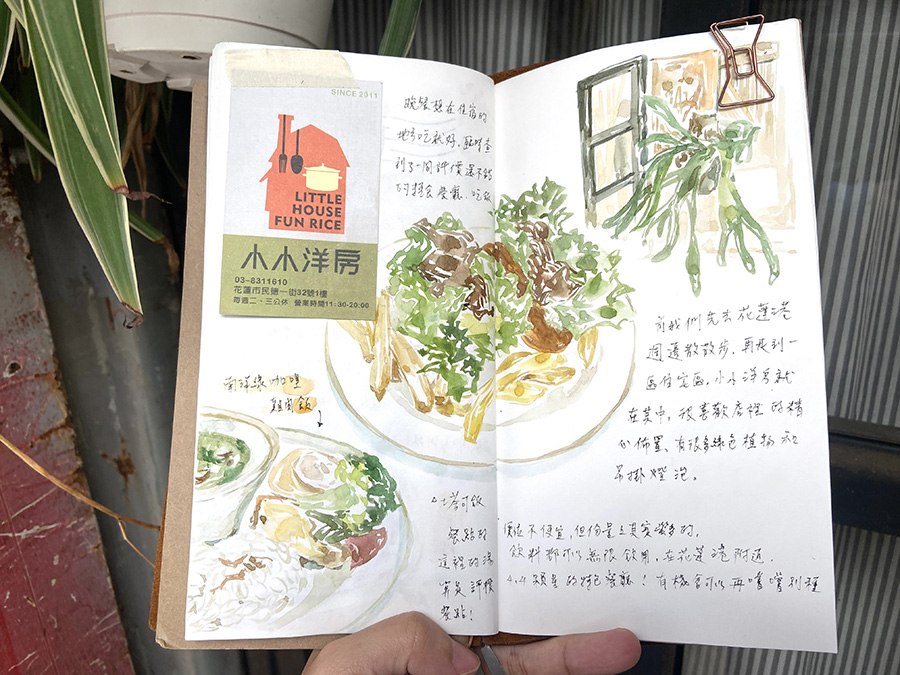 SINCE 2011
LITTLE
HOUSE
FUN RICE
小小洋房
03-8311610
花蓮市民德一街32號1樓
每週二、三公休 營業時間11:30-20:00
晚餐想在住宿的
地方吃就好,臨時查
到了一間評價還不錯
的餐廳,吃飯
南洋綠咖哩
雞肉飯
塔可飯
餐點的
這裡的
算是評價
餐點!
前我們先去花蓮港
週邊散散步,再走到一
區住宅區,小小洋房就
在其中,很喜歡店裡的精
心佈置、有很多綠色植物和
吊掛燈泡。
價位不便宜,但份量是真蠻多的,
飲料都可以無限飲用,在花蓮港附近
4.4顆星的特色餐廳!有機會可以再嚐嚐別種